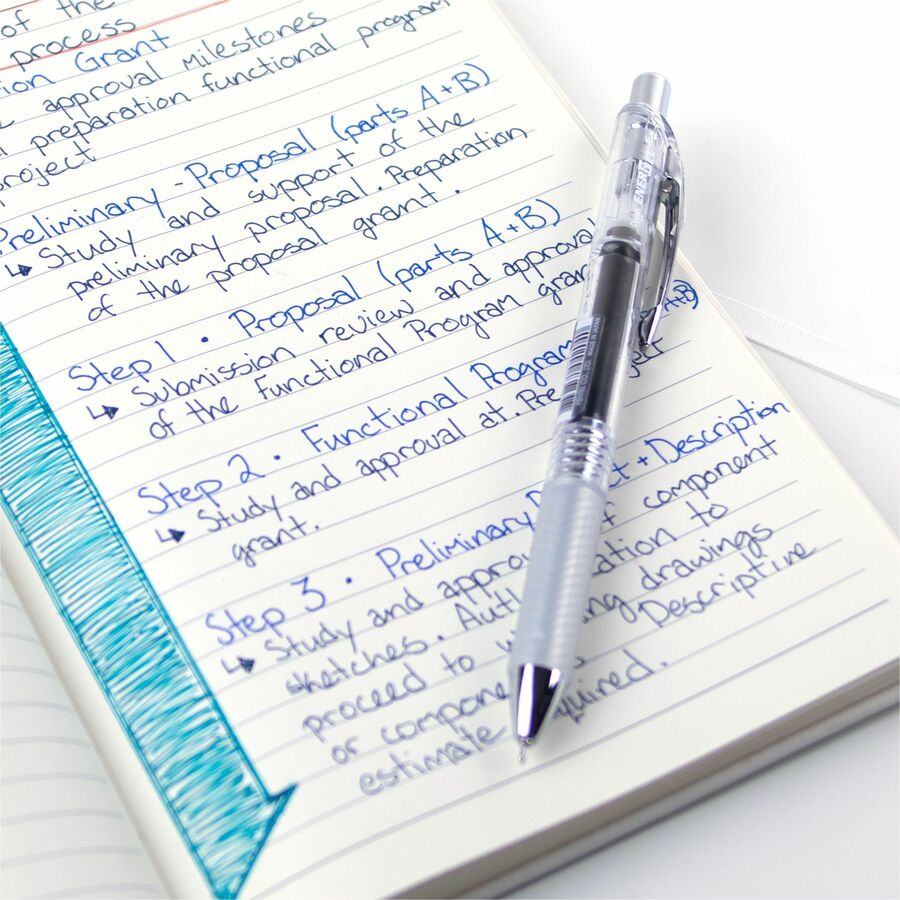 of the
process
ion Grant
approval milestones
preparation functional program
project
Preliminary - Proposal (parts A+B)
↳ Study and support of the
preliminary proposal. Preparation
of the proposal grant.
Step 1 • Proposal (parts A+B)
↳ Submission review and approval
of the Functional Program gran
Step 2 • Functional Program A+B)
↳ Study and approval at. Pre ject
grant.
Step 3 • Preliminary ct + Description
↳ Study and appro of component
sketches. Auth ation to
proceed to w ng drawings
or compone s Descriptive
estimate quired.
ENERGEL
MADE IN JAPAN